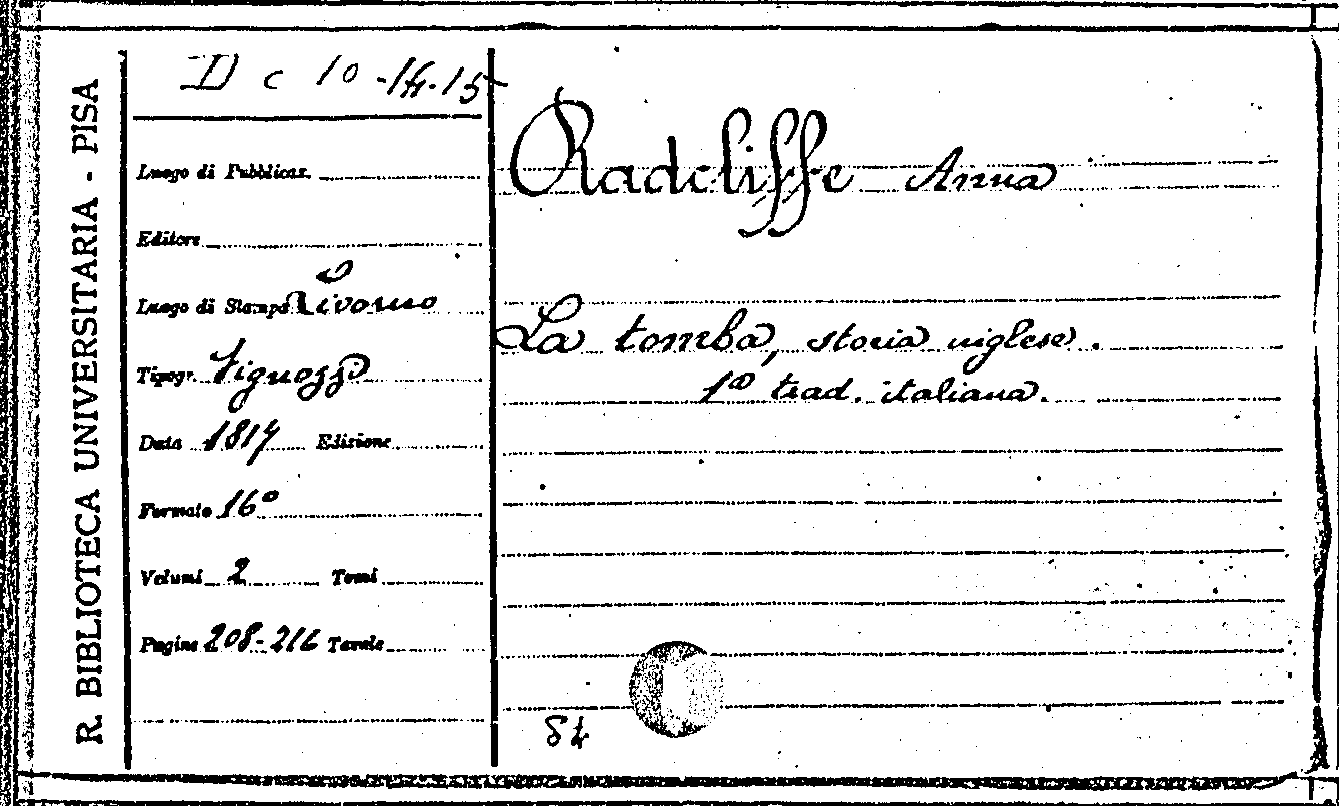 R. BIBLIOTECA UNIVERSITARIA - PISA
D c 10 - 14.15
Luogo di Pubblicaz.
Editore
Luogo di Stampa Livorno
Tipogr. Vignozzi
Data 1817 Edizione
Formato 16°
Volumi 2 Tomi
Pagine 208-216 Tavole
Radcliffe Anna
La tomba, storia inglese.
1ª trad. italiana.